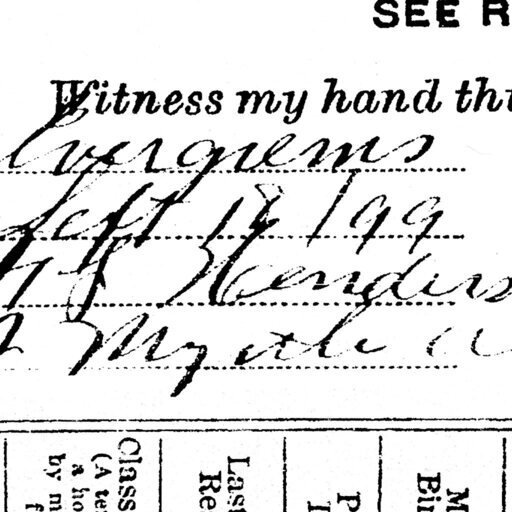 SEE R
Witness my hand thi
Evergreens
Sept 18 /99
Henders
Myrtle A
Class
(A te
a ho
by m
f
Last
Re
P
I
M
Ein